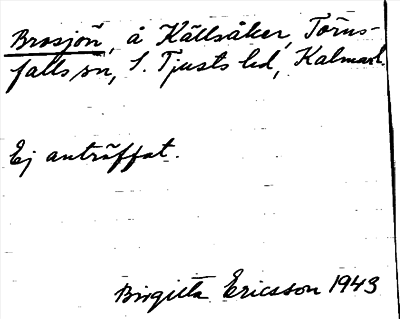 Brosjön, å Källsåker, Törns-
falls sn, S. Tjusts hd, Kalmar l.
Ej anträffat.
Birgitta Ericsson 1943